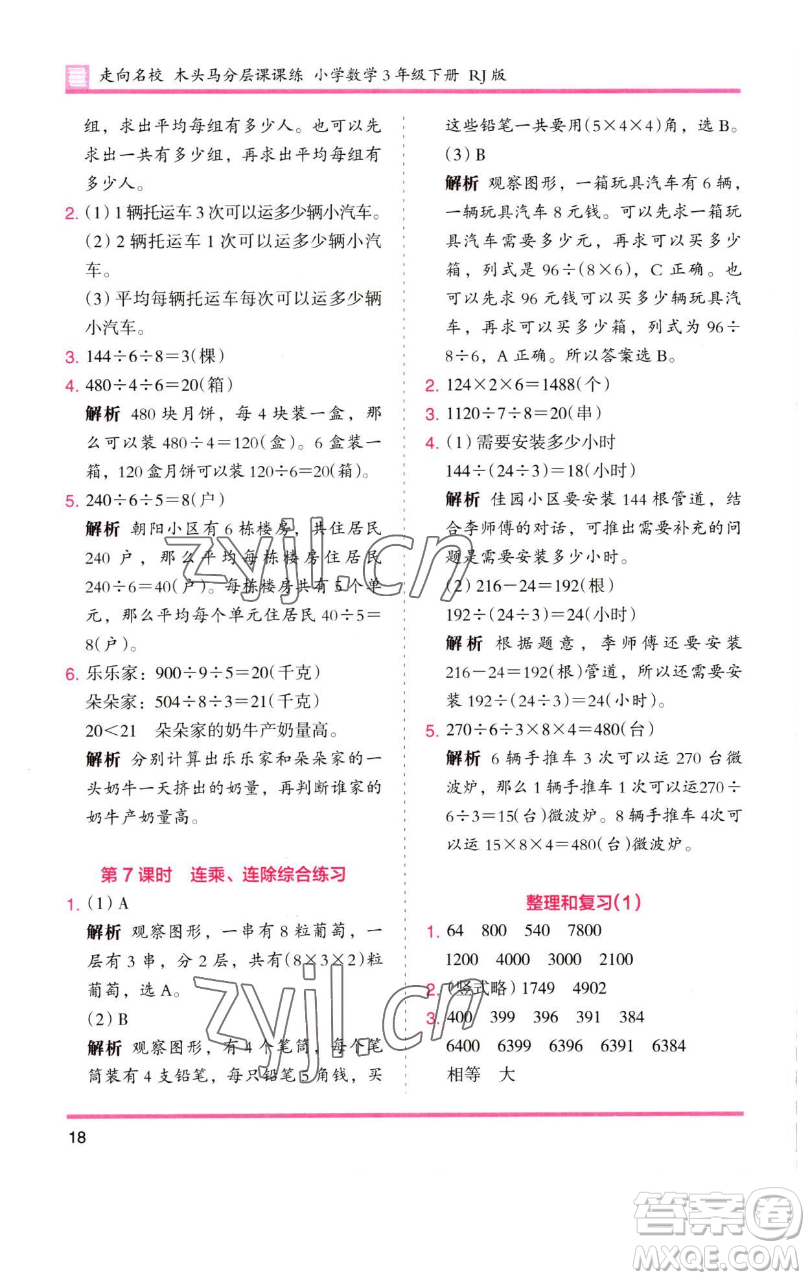 走向名校 木头马分层课课练 小学数学3年级下册 RJ版
组，求出平均每组有多少人。也可以先
求出一共有多少组，再求出平均每组有
多少人。
2. (1)1辆托运车3次可以运多少辆小汽车。
(2)2辆托运车1次可以运多少辆小汽
车。
(3)平均每辆托运车每次可以运多少辆
小汽车。
3. 144÷6÷8=3(棵)
4. 480÷4÷6=20(箱)
解析 480块月饼，每4块装一盒，那
么可以装480÷4=120(盒)。6盒装一
箱，120盒月饼可以装120÷6=20(箱)。
5. 240÷6÷5=8(户)
解析 朝阳小区有6栋楼房，共住居民
240户，那么平均每栋楼房住居民240÷6=40(户)。每栋楼房有5个单
元，那么平均每个单元住居民40÷5=
8(户)。
6. 乐乐家：900÷9÷5=20(千克)
朵朵家：504÷8÷3=21(千克)
20<21 朵朵家的奶牛产奶量高。
解析 分别计算出乐乐家和朵朵家的一
头奶牛一天挤出的奶量，再判断谁家的
奶牛产奶量高。
第7课时 连乘、连除综合练习
1. (1)A
解析 观察图形，一串有8粒葡萄，一
层有3串，分2层，共有(8×3×2)粒
葡萄，选A。
(2)B
解析 观察图形，有4个笔筒，每个笔
筒装有4支铅笔，每只铅笔5角钱，买
这些铅笔一共要用(5×4×4)角，选B。
(3)B
解析 观察图形，一箱玩具汽车有6辆，
一辆玩具汽车8元钱。可以先求一箱玩
具汽车需要多少元，再求可以买多少
箱，列式为96÷(8×6)，C正确。也
可以先求96元钱可以买多少辆玩具汽
车，再求可以买多少箱，列式为96÷
8÷6，A正确。所以答案选B。
2. 124×2×6=1488(个)
3. 1120÷7÷8=20(串)
4. (1)需要安装多少小时
144÷(24÷3)=18(小时)
解析 佳园小区要安装144根管道，结
合李师傅的对话，可推出需要补充的问
题是需要安装多少小时。
(2)216-24=192(根)
192÷(24÷3)=24(小时)
解析 根据题意，李师傅还要安装
216-24=192(根)管道，所以还需要安
装192÷(24÷3)=24(小时)。
5. 270÷6÷3×8×4=480(台)
解析 6辆手推车3次可以运270台微
波炉，那么1辆手推车1次可以运270÷
6÷3=15(台)微波炉。8辆手推车4次可
以运15×8×4=480(台)微波炉。
整理和复习(1)
1. 64 800 540 7800
1200 4000 3000 2100
2. (竖式略)1749 4902
3. 400 399 396 391 384
6400 6399 6396 6391 6384
相等 大
18
zyjl.cn
zyjl.cn
答案圈
MXQE.COM